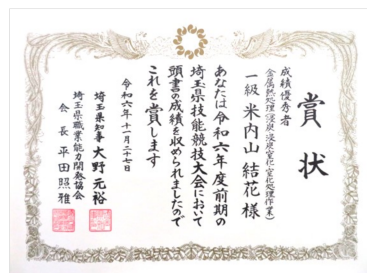 賞状
成績優秀者
金属熱処理（浸炭・浸炭窒化・窒化処理作業）
一級 米内山 結花 様
あなたは令和六年度前期の
埼玉県技能競技大会において
頭書の成績を収められましたので
これを賞します
令和六年十一月二十七日
埼玉県知事 大野元裕
埼玉県職業能力開発協会
会長 平田照雅